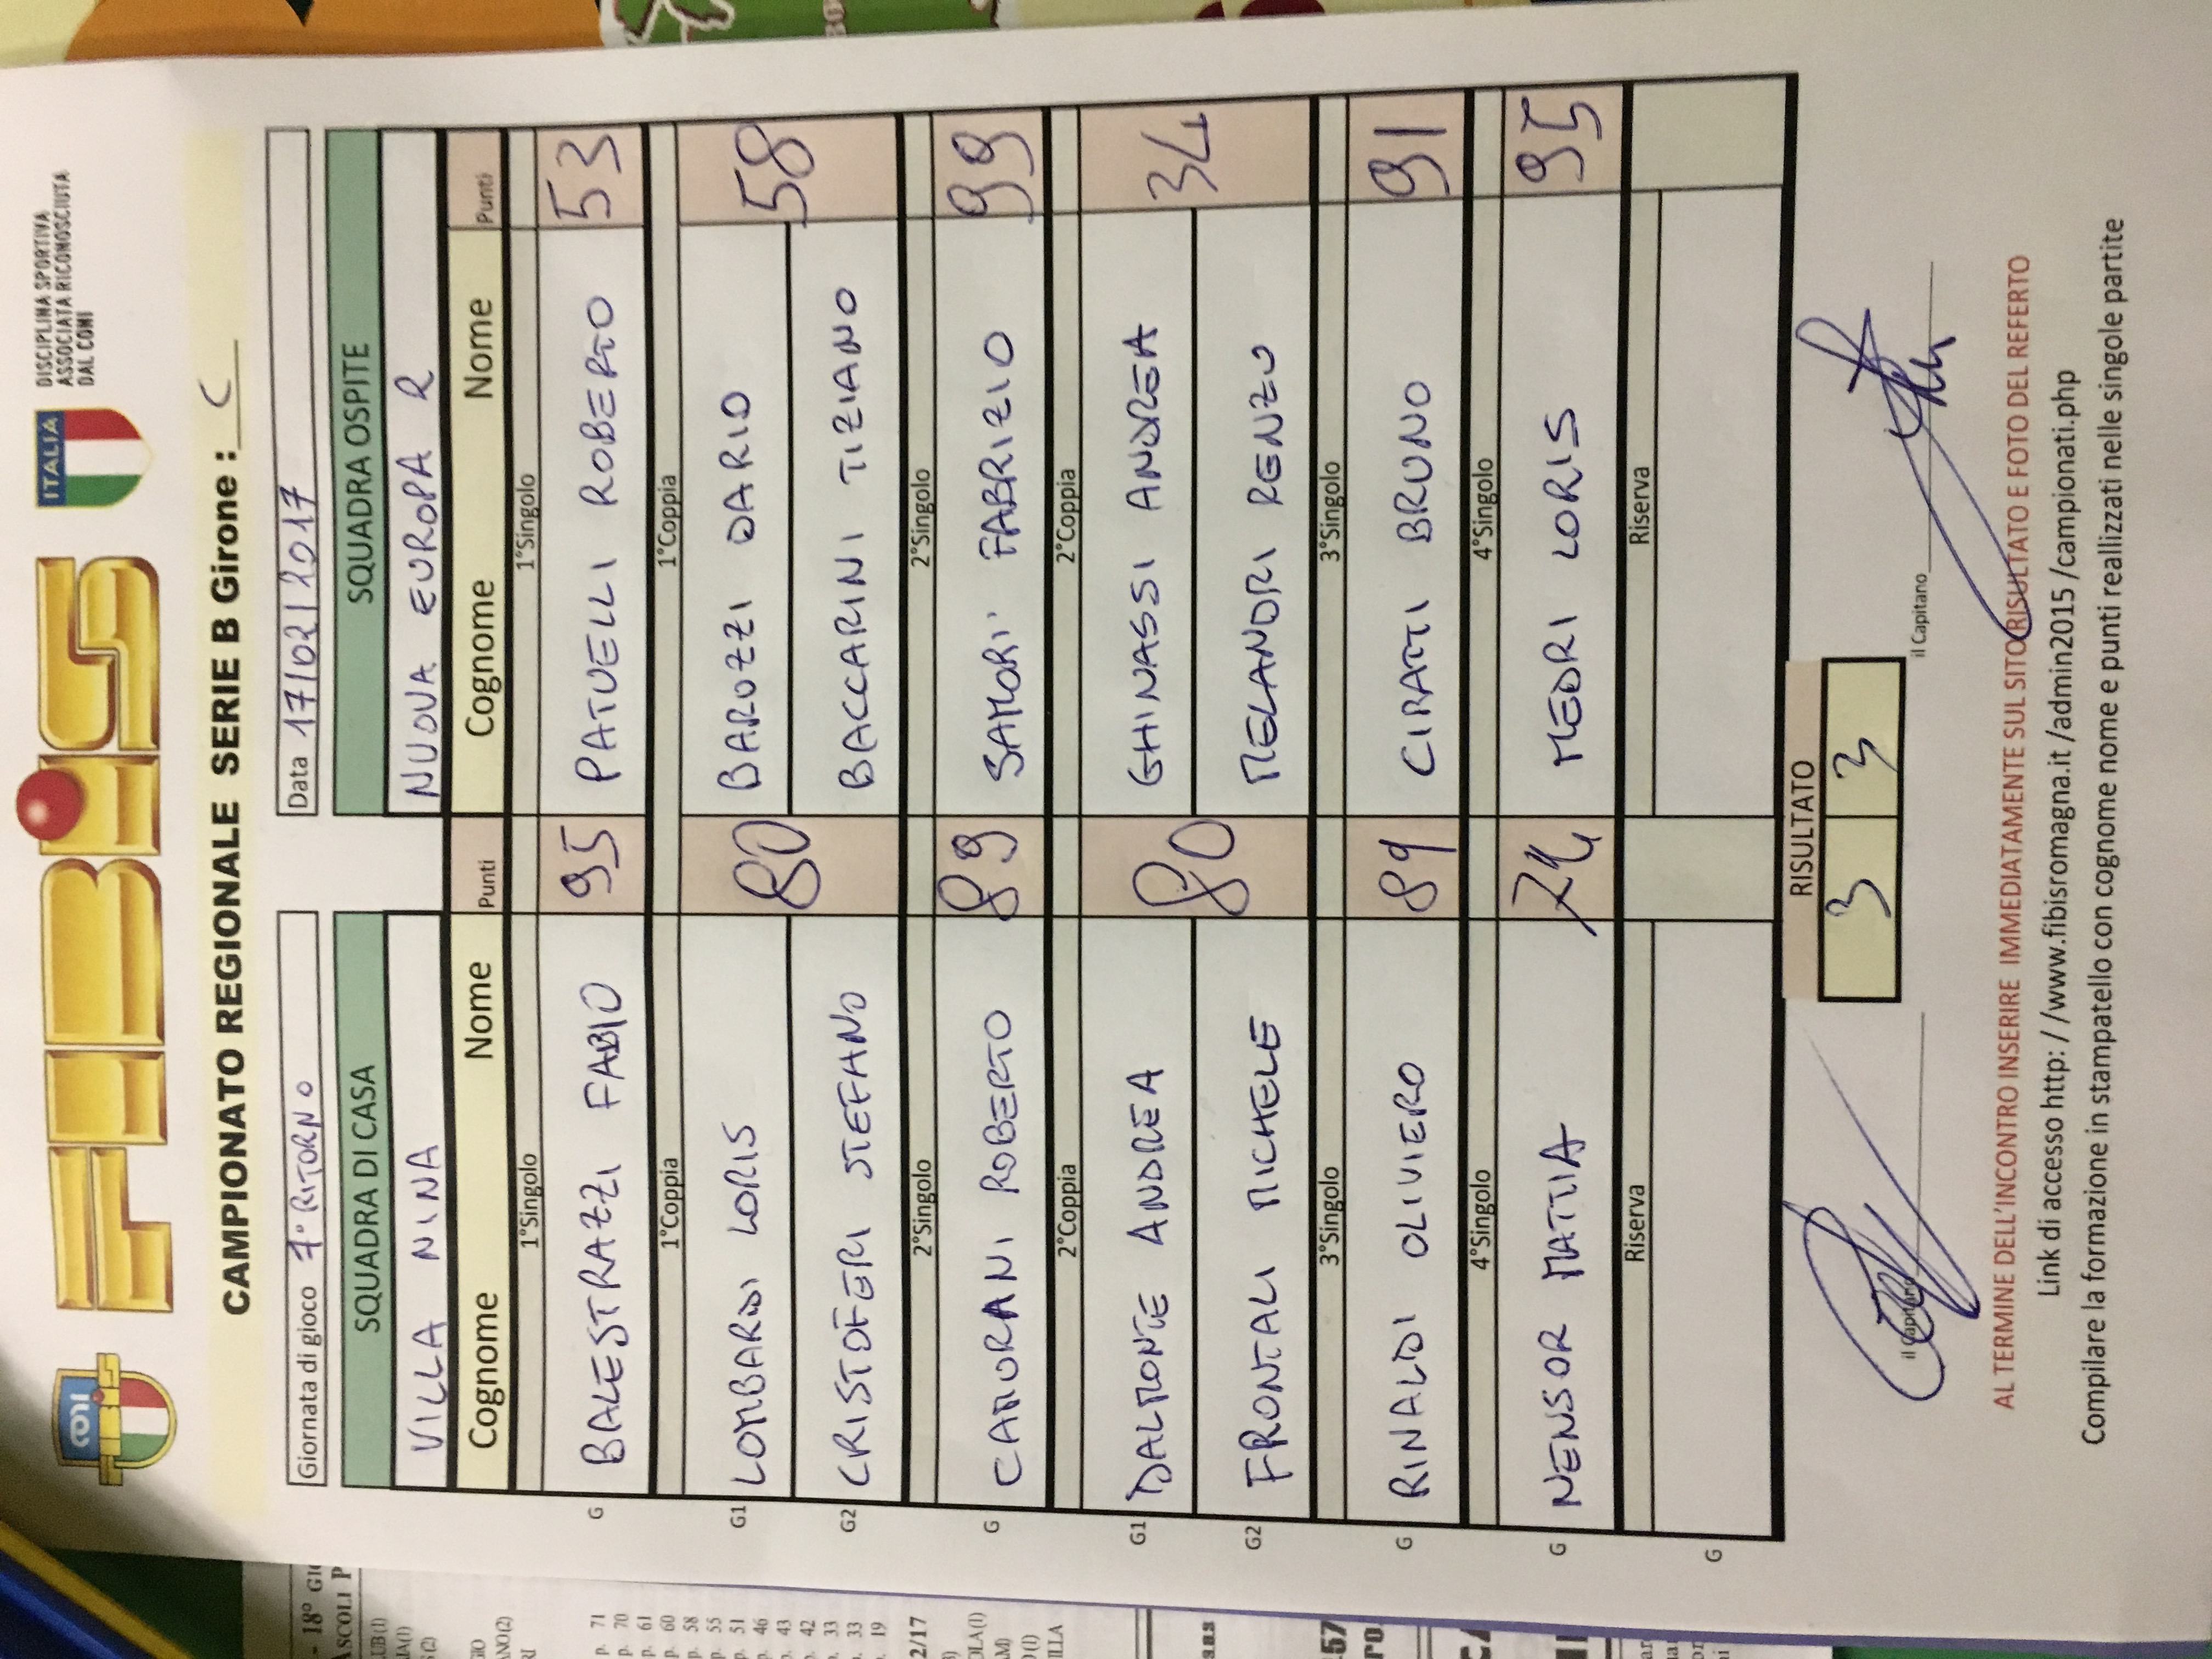 FIBiS
ITALIA
DISCIPLINA SPORTIVA
ASSOCIATA RICONOSCIUTA
DAL CONI
CAMPIONATO REGIONALE SERIE B Girone : C
Giornata di gioco 7° RITORNO Data 17/02/2017
SQUADRA DI CASA SQUADRA OSPITE
VILLA NINA NUOVA EUROPA R
Cognome Nome Punti Cognome Nome Punti
1°Singolo 1°Singolo
G BALESTRAZZI FABIO 95 PATUELLI ROBERTO 53
1°Coppia 1°Coppia
G1 LOMBARDI LORIS 80 BAROZZI DARIO 58
G2 CRISTOFERI STEFANO BACCARINI TIZIANO
2°Singolo 2°Singolo
G CAMURANI ROBERTO 89 SAMORI' FABRIZIO 99
2°Coppia 2°Coppia
G1 DALMONTE ANDREA 80 GHINASSI ANDREA 34
G2 FRONTALI MICHELE MELANDRI RENZO
3°Singolo 3°Singolo
G RINALDI OLIVIERO 89 CIRATTI BRUNO 91
4°Singolo 4°Singolo
G NENSOR MATTIA 74 MEDRI LORIS 95
Riserva Riserva
G
RISULTATO
3 3
il Capitano il Capitano
AL TERMINE DELL'INCONTRO INSERIRE IMMEDIATAMENTE SUL SITO RISULTATO E FOTO DEL REFERTO
Link di accesso http: / /www.fibisromagna.it /admin2015 /campionati.php
Compilare la formazione in stampatello con cognome nome e punti reallizzati nelle singole partite